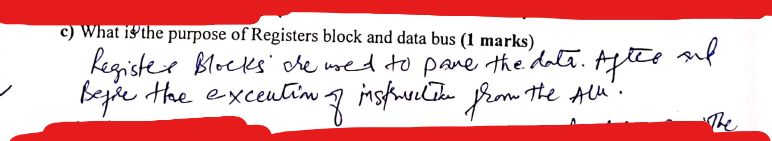 c) What is the purpose of Registers block and data bus (1 marks)
Register Blocks are used to pave the data. After and
Before the execution of instruction from the ALU.
The